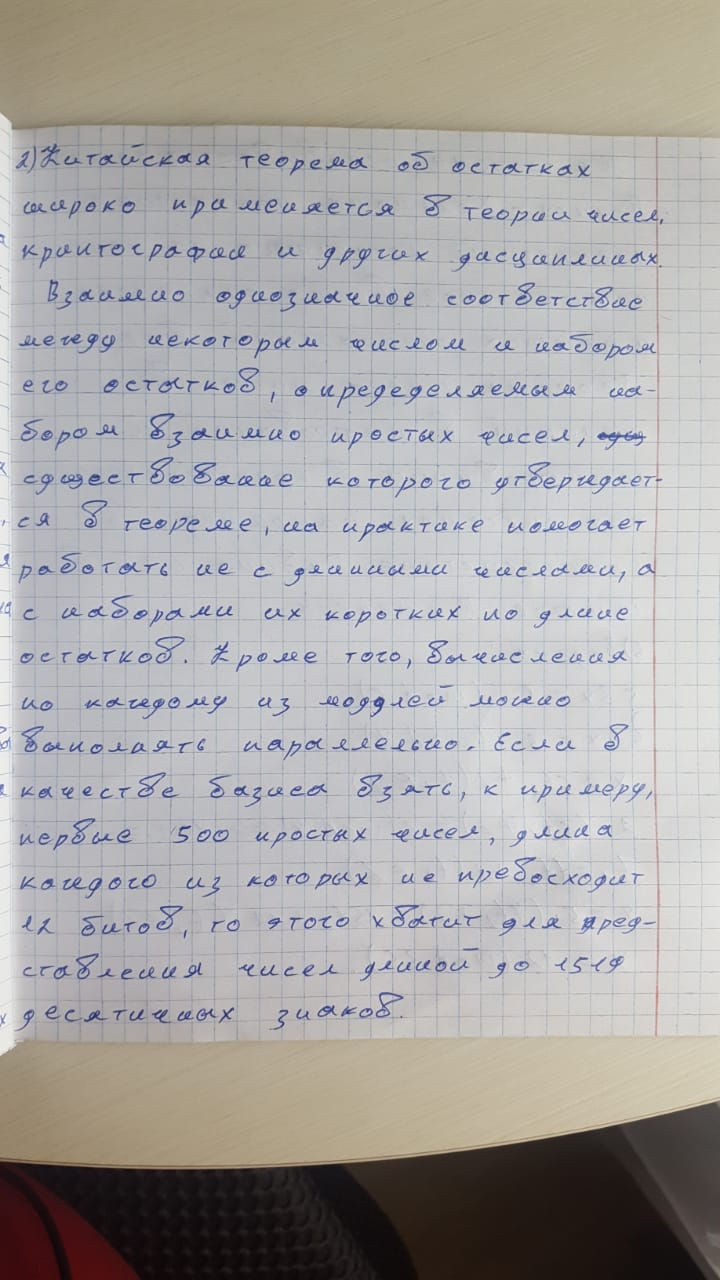 2) Китайская теорема об остатках
широко применяется в теории чисел,
криптографии и других дисциплинах.
Взаимно однозначное соответствие
между некоторым числом и набором
его остатков, определяемым на-
бором взаимно простых чисел,
существование которого утверждает-
ся в теореме, на практике помогает
работать не с длинными числами, а
с наборами их коротких по длине
остатков. Кроме того, вычисления
по каждому из модулей можно
выполнять параллельно. Если в
качестве базиса взять, к примеру,
первые 500 простых чисел, длина
каждого из которых не превосходит
12 битов, то этого хватит для пред-
ставления чисел длиной до 1519
десятичных знаков.